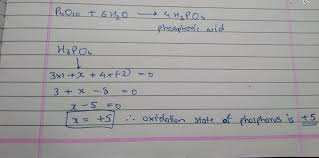 P4O10 + 6H2O → 4H3PO4
phosphoric acid
H3PO4
↓
3x1 + x + 4x(-2) = 0
3 + x - 8 = 0
x - 5 = 0
x = +5 ∴ oxidation state of phosphorus is +5